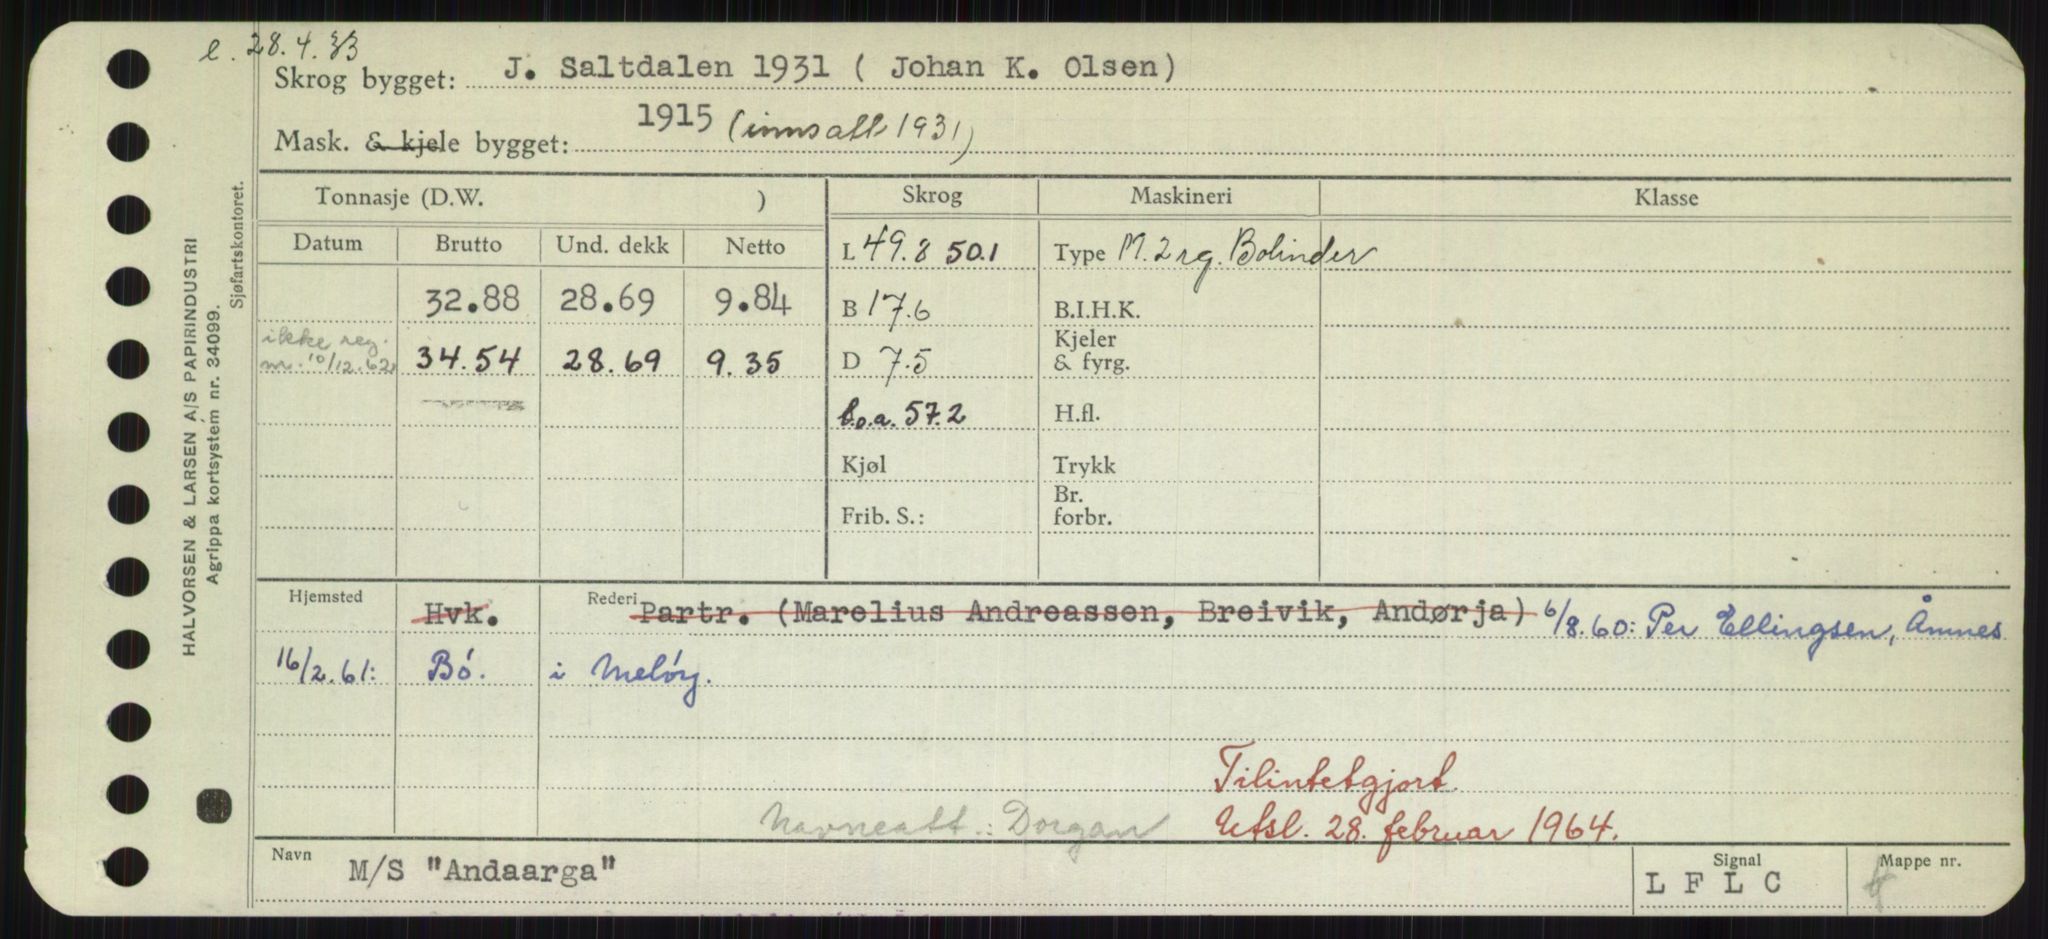 e. 28.4.33
Skrog bygget: J. Saltdalen 1931 ( Johan K. Olsen)
Mask. & kjele bygget: 1915 (innsatt 1931)
Tonnasje (D.W. ) Skrog Maskineri Klasse
Datum Brutto Und. dekk Netto L 49.8 50.1 Type M. 2 rg. Bolinder
32.88 28.69 9.84 B 17.6 B.I.H.K.
ikke reg. Kjeler
nr. 10/12.62 34.54 28.69 9.35 D 7.5 & fyrg.
l.o.a. 57.2 H.fl.
Kjøl Trykk
Br.
Frib. S.: forbr.
Hjemsted Hvk. Rederi Partr. (Marelius Andreassen, Breivik, Andørja) 6/8.60: Per Ellingsen, Åmnes
16/2.61: Bó. i Melöy.
Tilintetgjort.
Navneatt.: Dorgan Utsl. 28. februar 1964.
Navn M/S "Andaarga" Signal L F L C Mappe nr.
HALVORSEN & LARSEN A/S PAPIRINDUSTRI
Agrippa kortsystem nr. 34099.
Sjøfartskontoret.